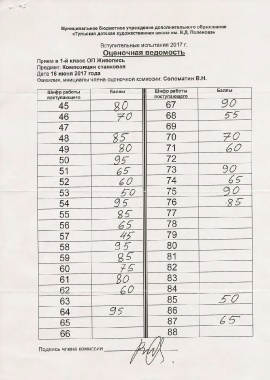 Муниципальное бюджетное учреждение дополнительного образования
«Тульская детская художественная школа им. В.Д. Поленова»
Вступительные испытания 2017 г.
Оценочная ведомость
Прием в 1-й класс ОП Живопись
Предмет: Композиция станковая
Дата 16 июня 2017 года
Фамилия, инициалы члена оценочной комиссии: Соломатин В.Н.
Шифр работы поступающего Баллы Шифр работы поступающего Баллы
45 80 67 90
46 70 68 55
47 69
48 85 70 70
49 80 71 60
50 95 72
51 65 73 90
52 60 74 65
53 50 75 90
54 95 76 85
55 85 77
56 65 78
57 45 79
58 95 80
59 85 81
60 75 82
61 80 83
62 60 84
63 85 50
64 95 86
65 87 65
66 88
Подпись члена комиссии